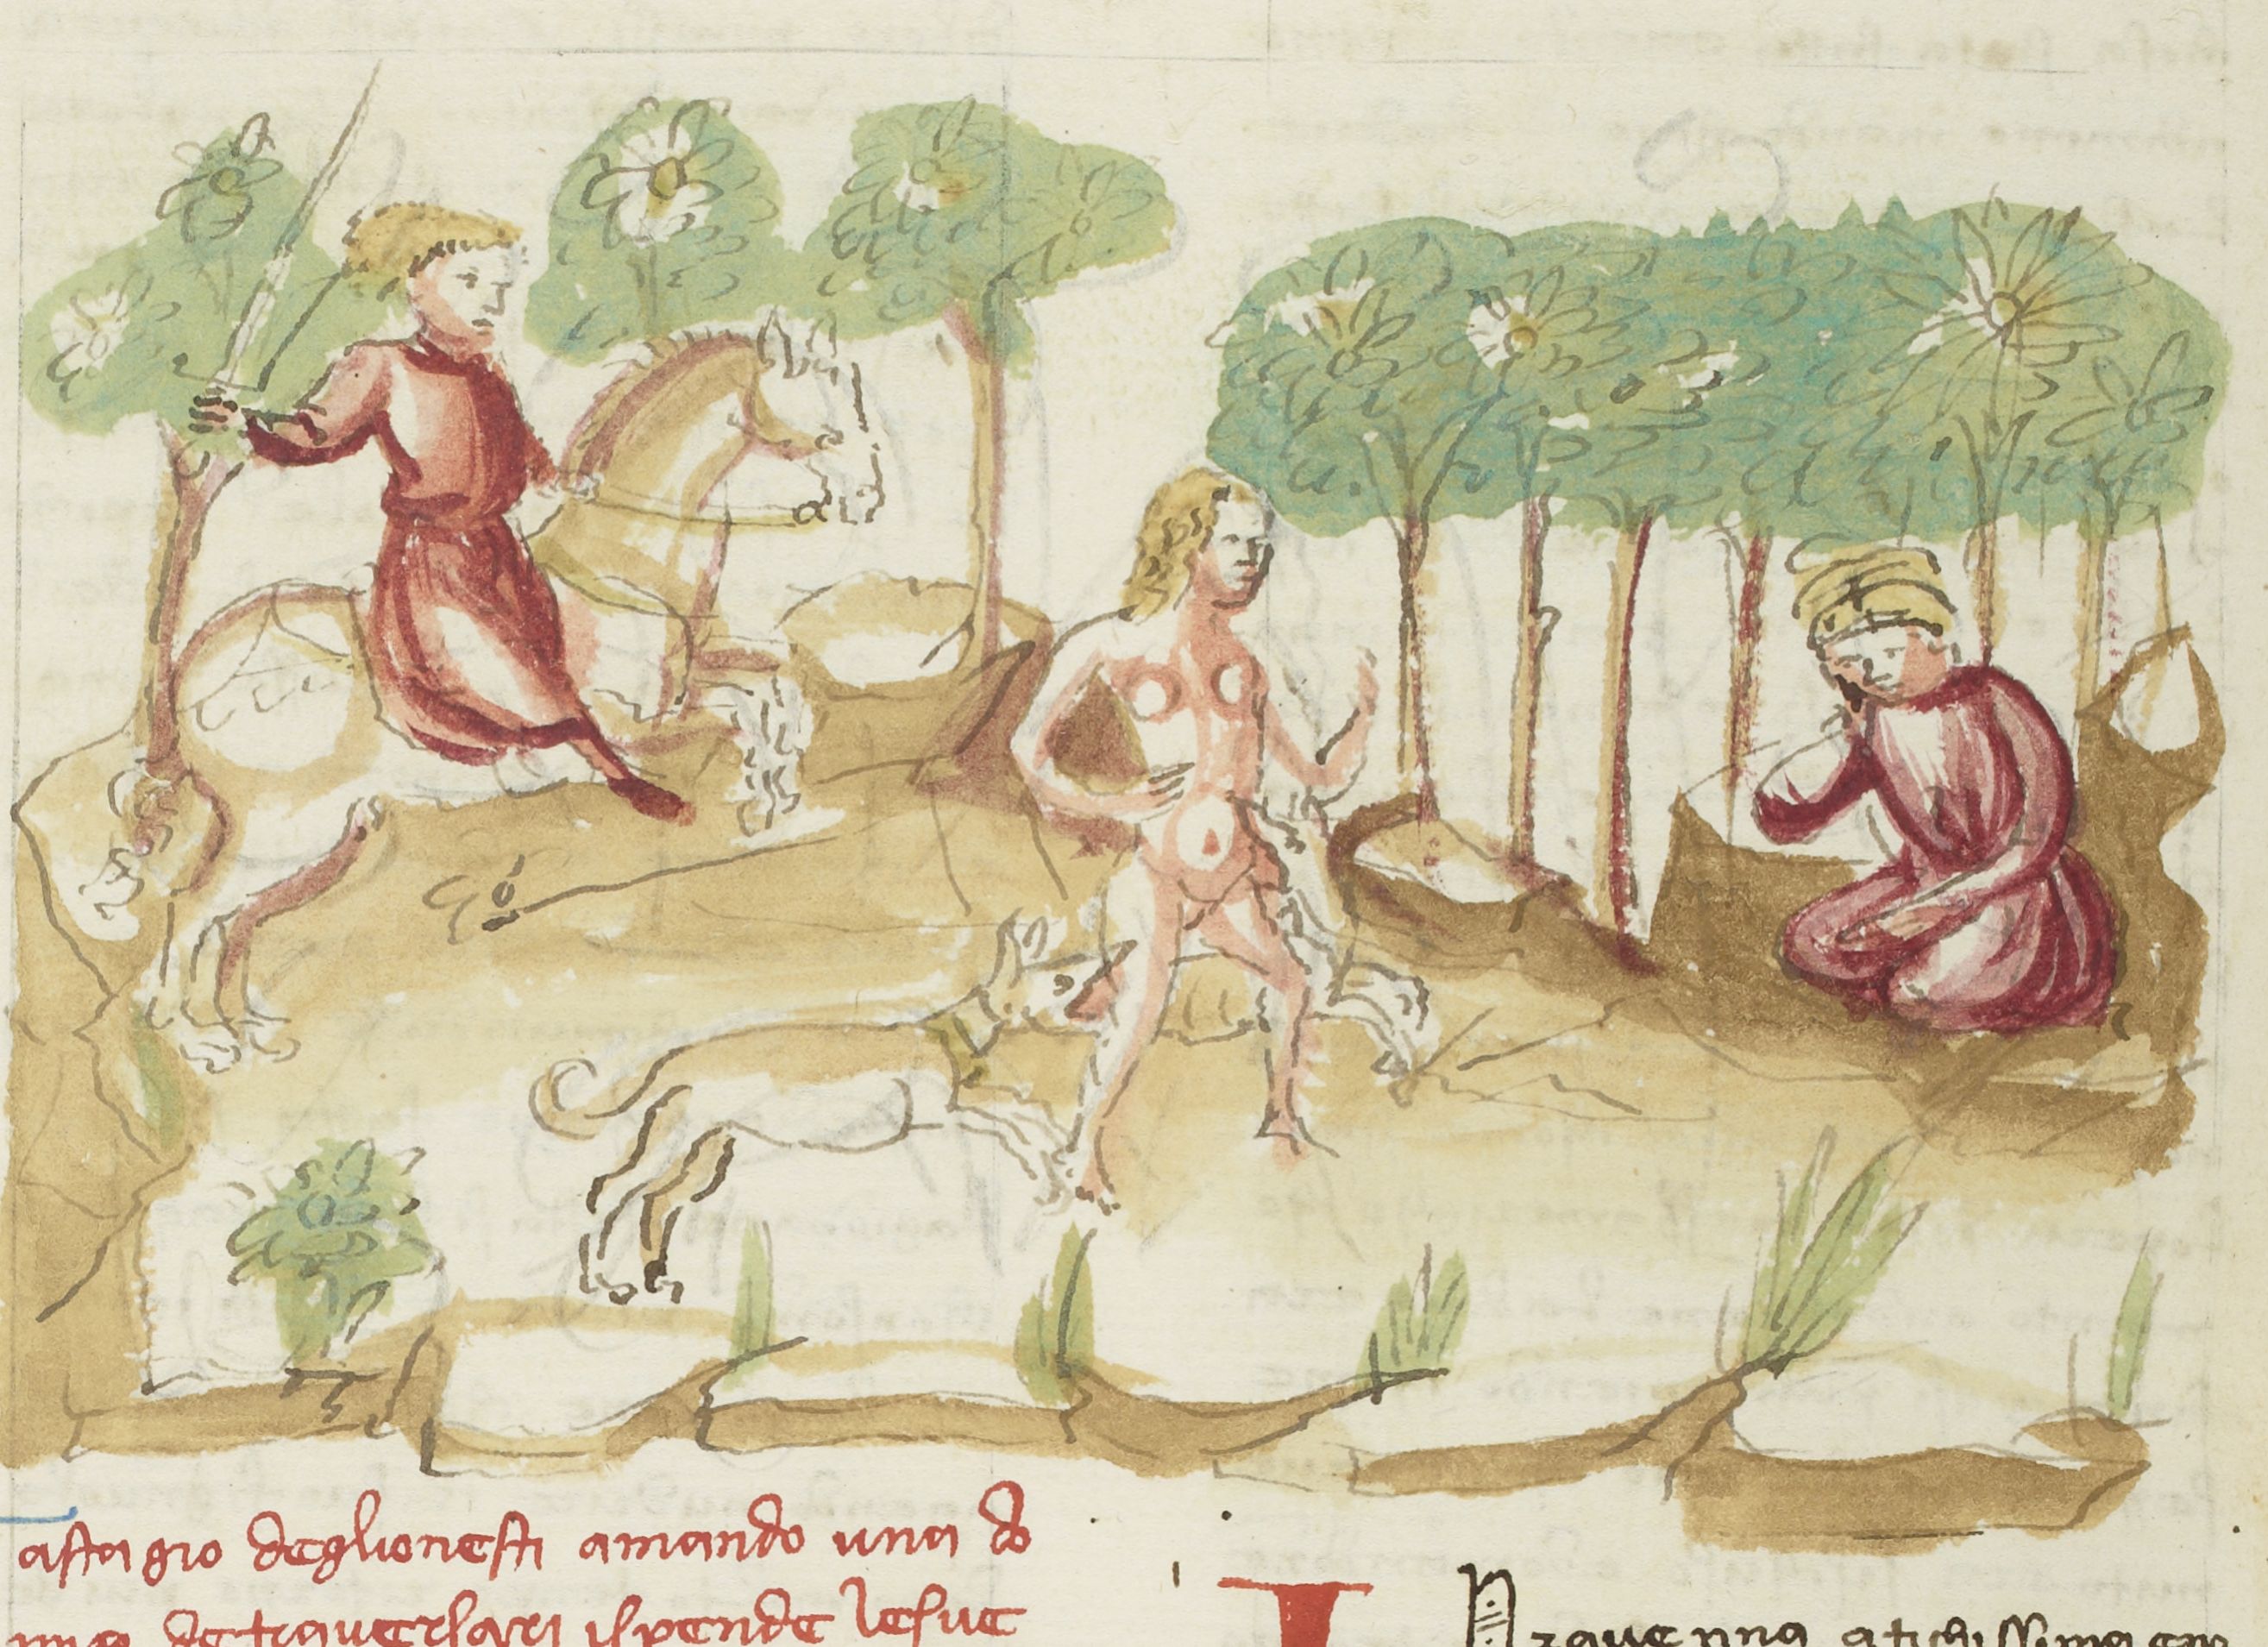 astagio deglionesti amando una do
nna detraversari ispende lesue
I
N ravenna atichissima cm